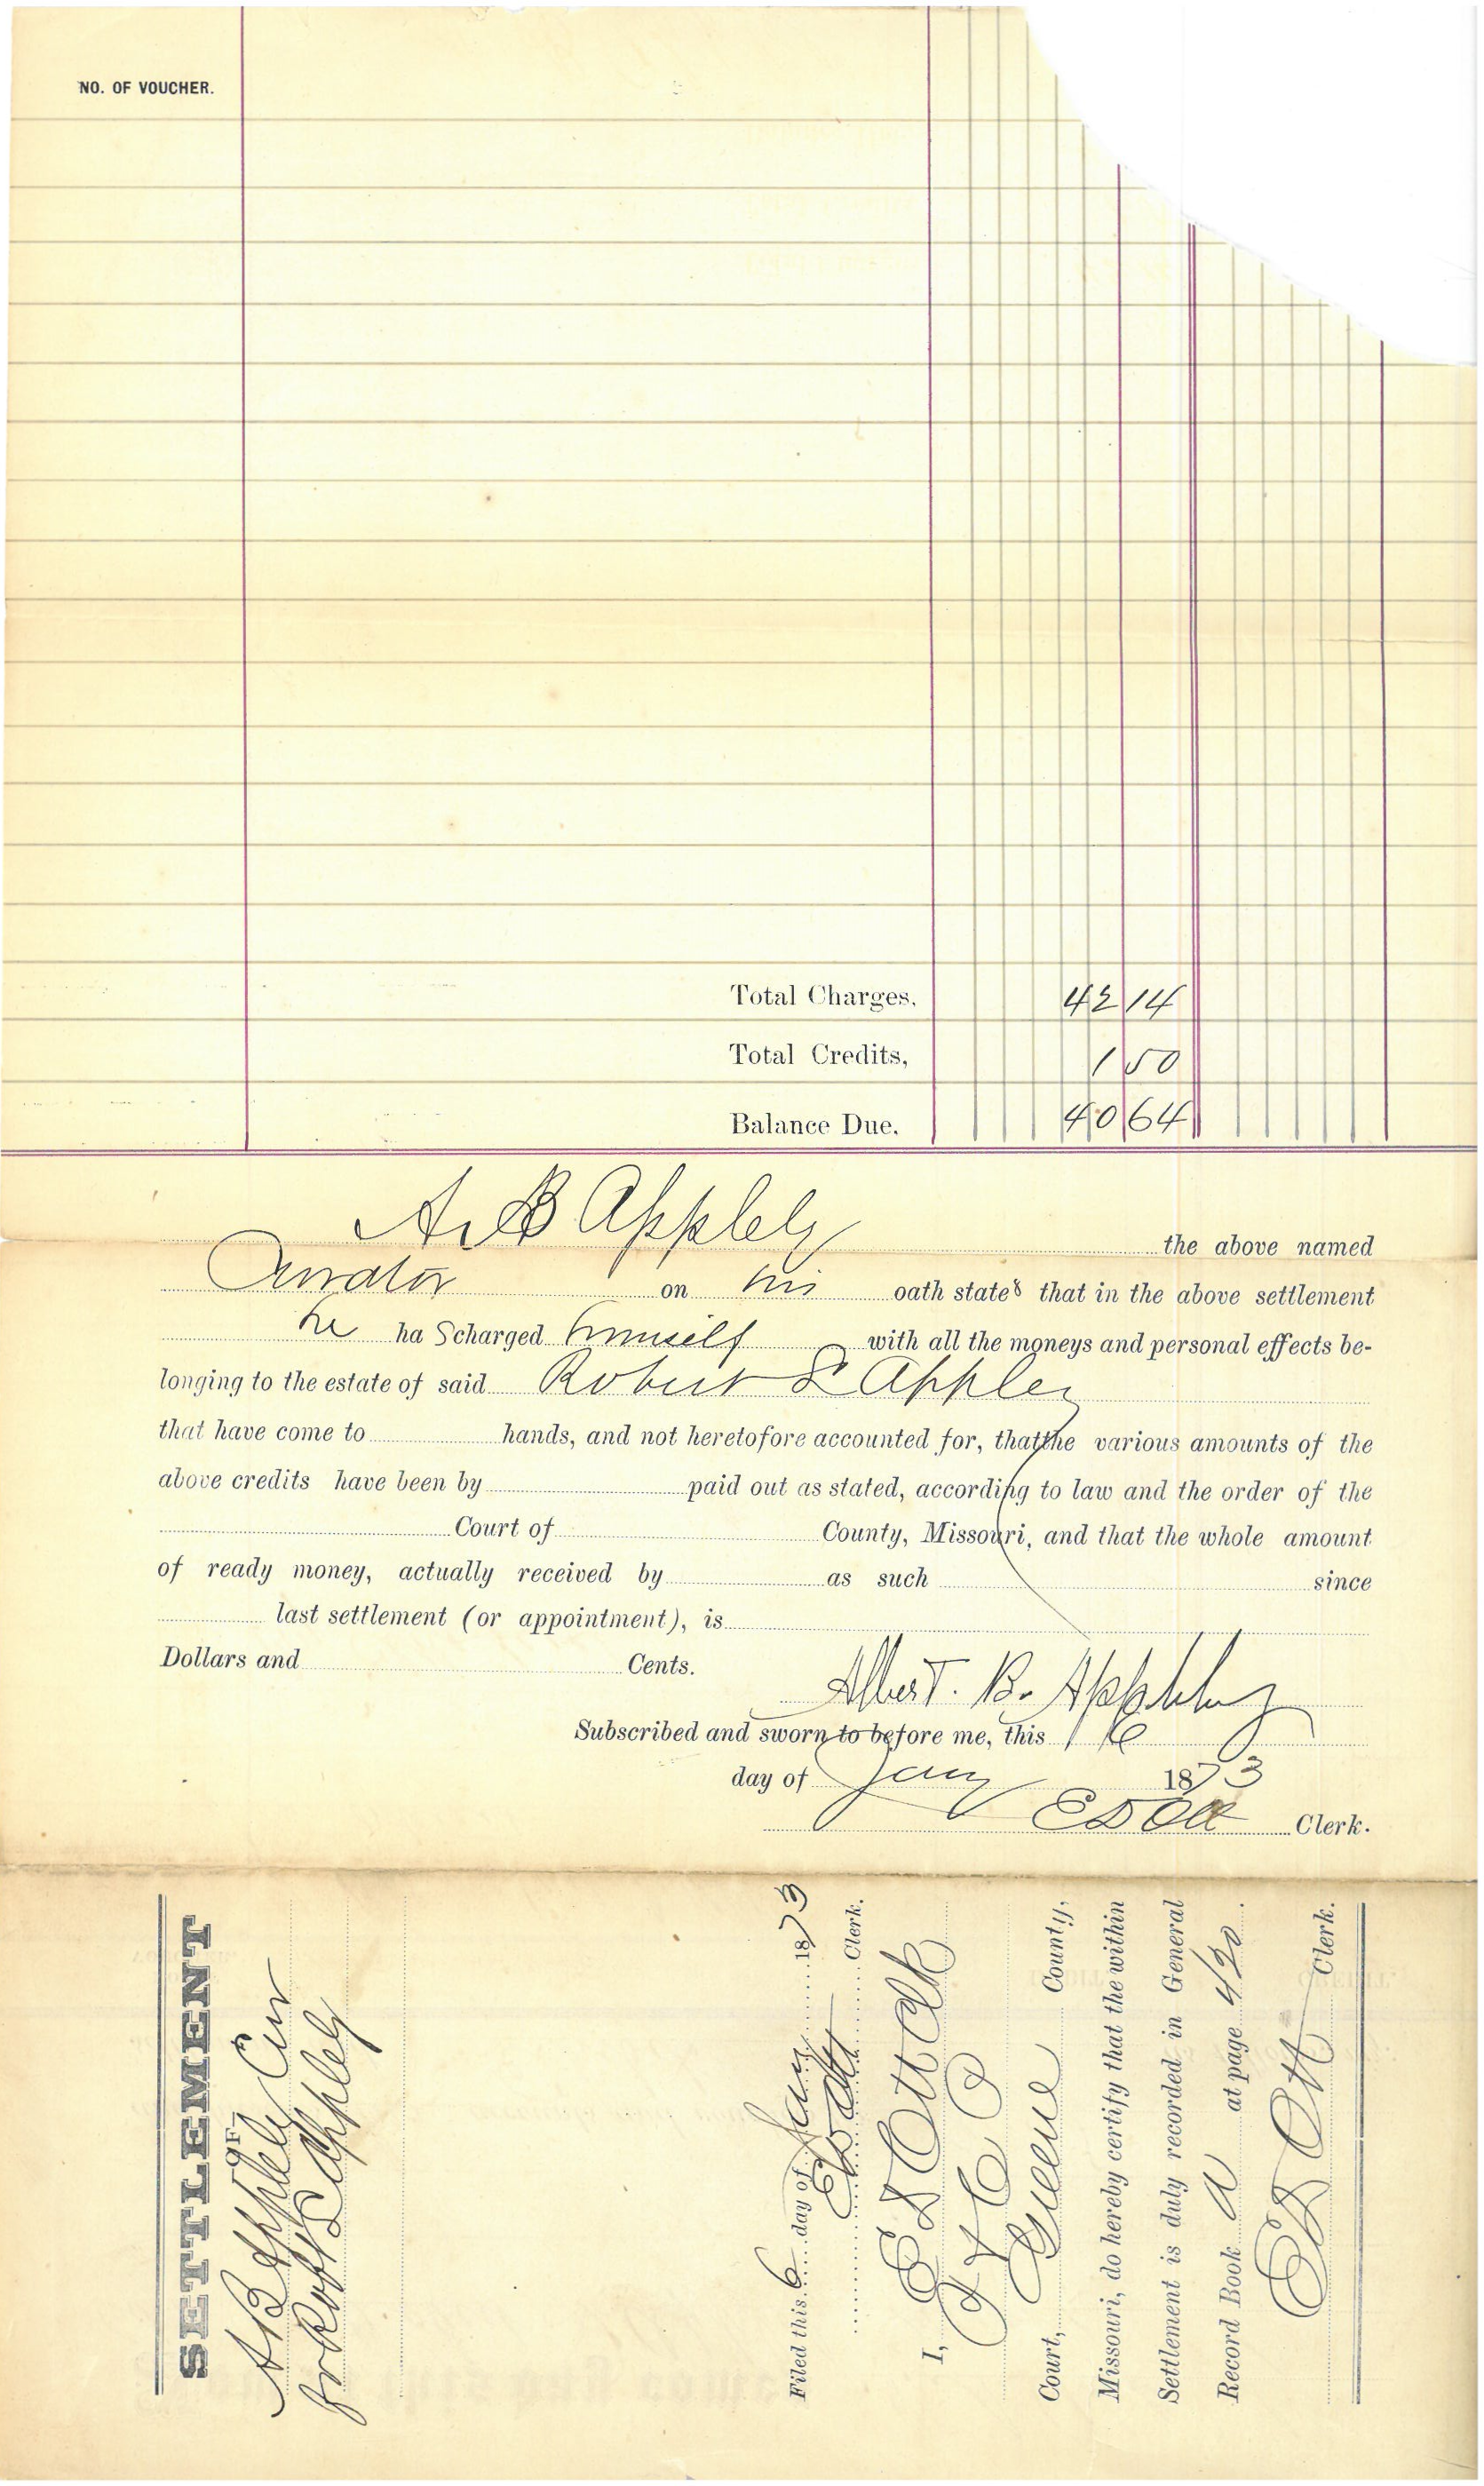 NO. OF VOUCHER.
Total Charges, 42 14
Total Credits, 1 50
Balance Due, 40 64
A. B Appleby the above named
Curator on his oath states that in the above settlement
he ha s charged himself with all the moneys and personal effects be-
longing to the estate of said Robert L Appley
that have come to hands, and not heretofore accounted for, that the various amounts of the
above credits have been by paid out as stated, according to law and the order of the
Court of County, Missouri, and that the whole amount
of ready money, actually received by as such since
last settlement (or appointment), is
Dollars and Cents.
Albert. B. Appleby
Subscribed and sworn to before me, this 6
day of Jany 1873
E D Ott Clerk.
SETTLEMENT
OF
A B Appleby Cur
for Robt L Appleby
Filed this 6 day of Jany 1873
E D Ott Clerk.
I, E D Ott Clk
P
Court, Greene County,
Missouri, do hereby certify that the within
Settlement is duly recorded in General
Record Book A at page 420.
E D Ott Clerk.